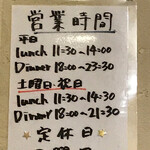 営業時間
平日
lunch 11:30~14:00
Dinner 18:00~23:30
土曜日・祝日
lunch 11:30~14:30
Dinner 18:00~21:30
定休日